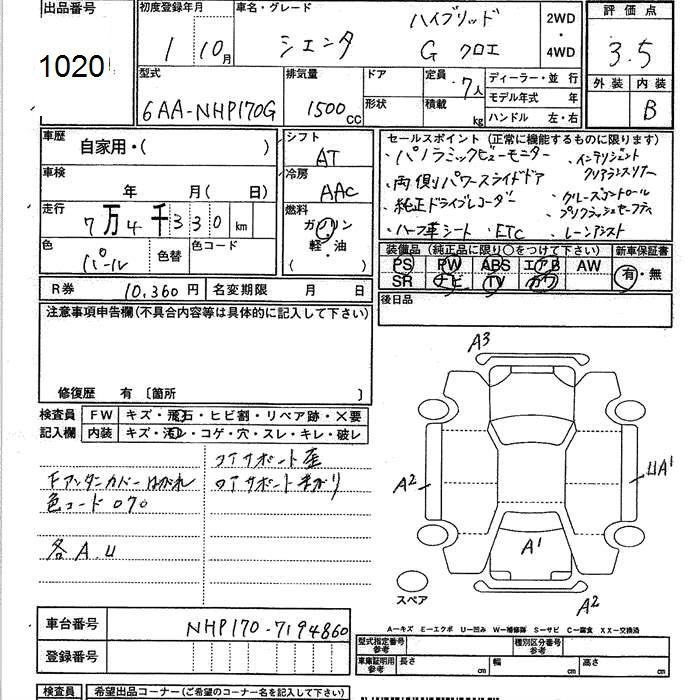 出品番号
1020
初度登録年月
1 10月
車名・グレード
ハイブリッド
シエンタ G クロエ
2WD
・
4WD
評価点
3.5
外装 内装
B
型式
6AA-NHP170G
排気量
1500cc
ドア
形状
定員 7人
積載 kg
ディーラー・並行
モデル年式 年
ハンドル 左・右
車歴
自家用・( )
車検
年 月( 日)
走行
7万4千330km
色
パール
色替
色コード
シフト
AT
冷房
AAC
燃料
ガソリン
・
軽・油
( )
セールスポイント(正常に機能するものに限ります)
・パノラミックビューモニター
・インテリジェント
クリアランスソナー
・両側パワースライドドア
・クルーズコントロール
・純正ドライブレコーダー
・プリクラッシュセーフティ
・ハーフ革シート ・ETC ・レーンアシスト
装備品(純正品に限り○をつけて下さい)
新車保証書
PS PW ABS エアB AW
SR ナビ TV カワ
有・無
R券 10,360円
名変期限 月 日
後日品
注意事項申告欄(不具合内容等は具体的に記入して下さい)
修復歴 有〔箇所 〕
検査員
記入欄
FW キズ・飛石・ヒビ割・リペア跡・×要
内装 キズ・汚レ・コゲ・穴・スレ・キレ・破レ
コアサポート歪
Fアンダーカバーはがれ コアサポートまがり
色コード070
各AU
A3
A2
UA1
A1
A2
スペア
A−キズ E−エクボ U−凹み W−補修跡 S−サビ C−腐食 XX−交換済
車台番号
NHP170-7194860
登録番号
型式指定番号
参考
種別区分番号
参考
車庫証明用
参考
長さ cm
幅 cm
高さ cm
検査員
希望出品コーナー(ご希望のコーナー名を記入して下さい)